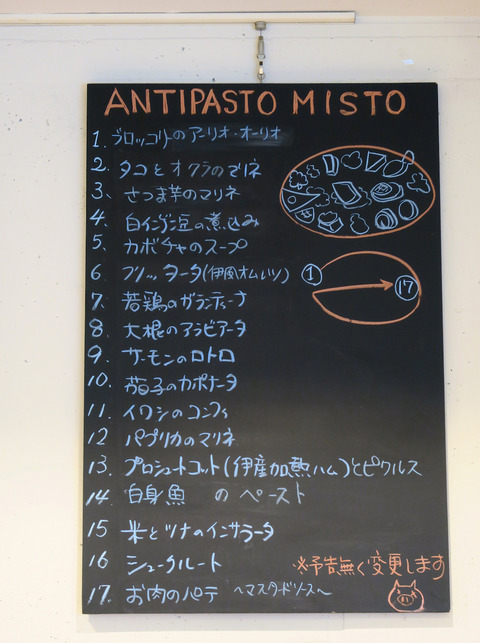 ANTIPASTO MISTO
1. ブロッコリーのアーリオ・オーリオ
2. タコとオクラのマリネ
3. さつま芋のマリネ
4. 白インゲン豆の煮込み
5. カボチャのスープ
6 フリッタータ(伊風オムレツ)
7. 若鶏のガランティーナ
8. 大根のアラビアータ
9. サーモンのロトロ
10. 茄子のカポナータ
11. イワシのコンフィ
12 パプリカのマリネ
13. プロシュートコット(伊産加熱ハム)とピクルス
14 白身魚 のペースト
15 米とツナのインサラータ
16 シュークルート
17. お肉のパテ 〜マスタードソース〜
① ⑰
※予告無く変更します